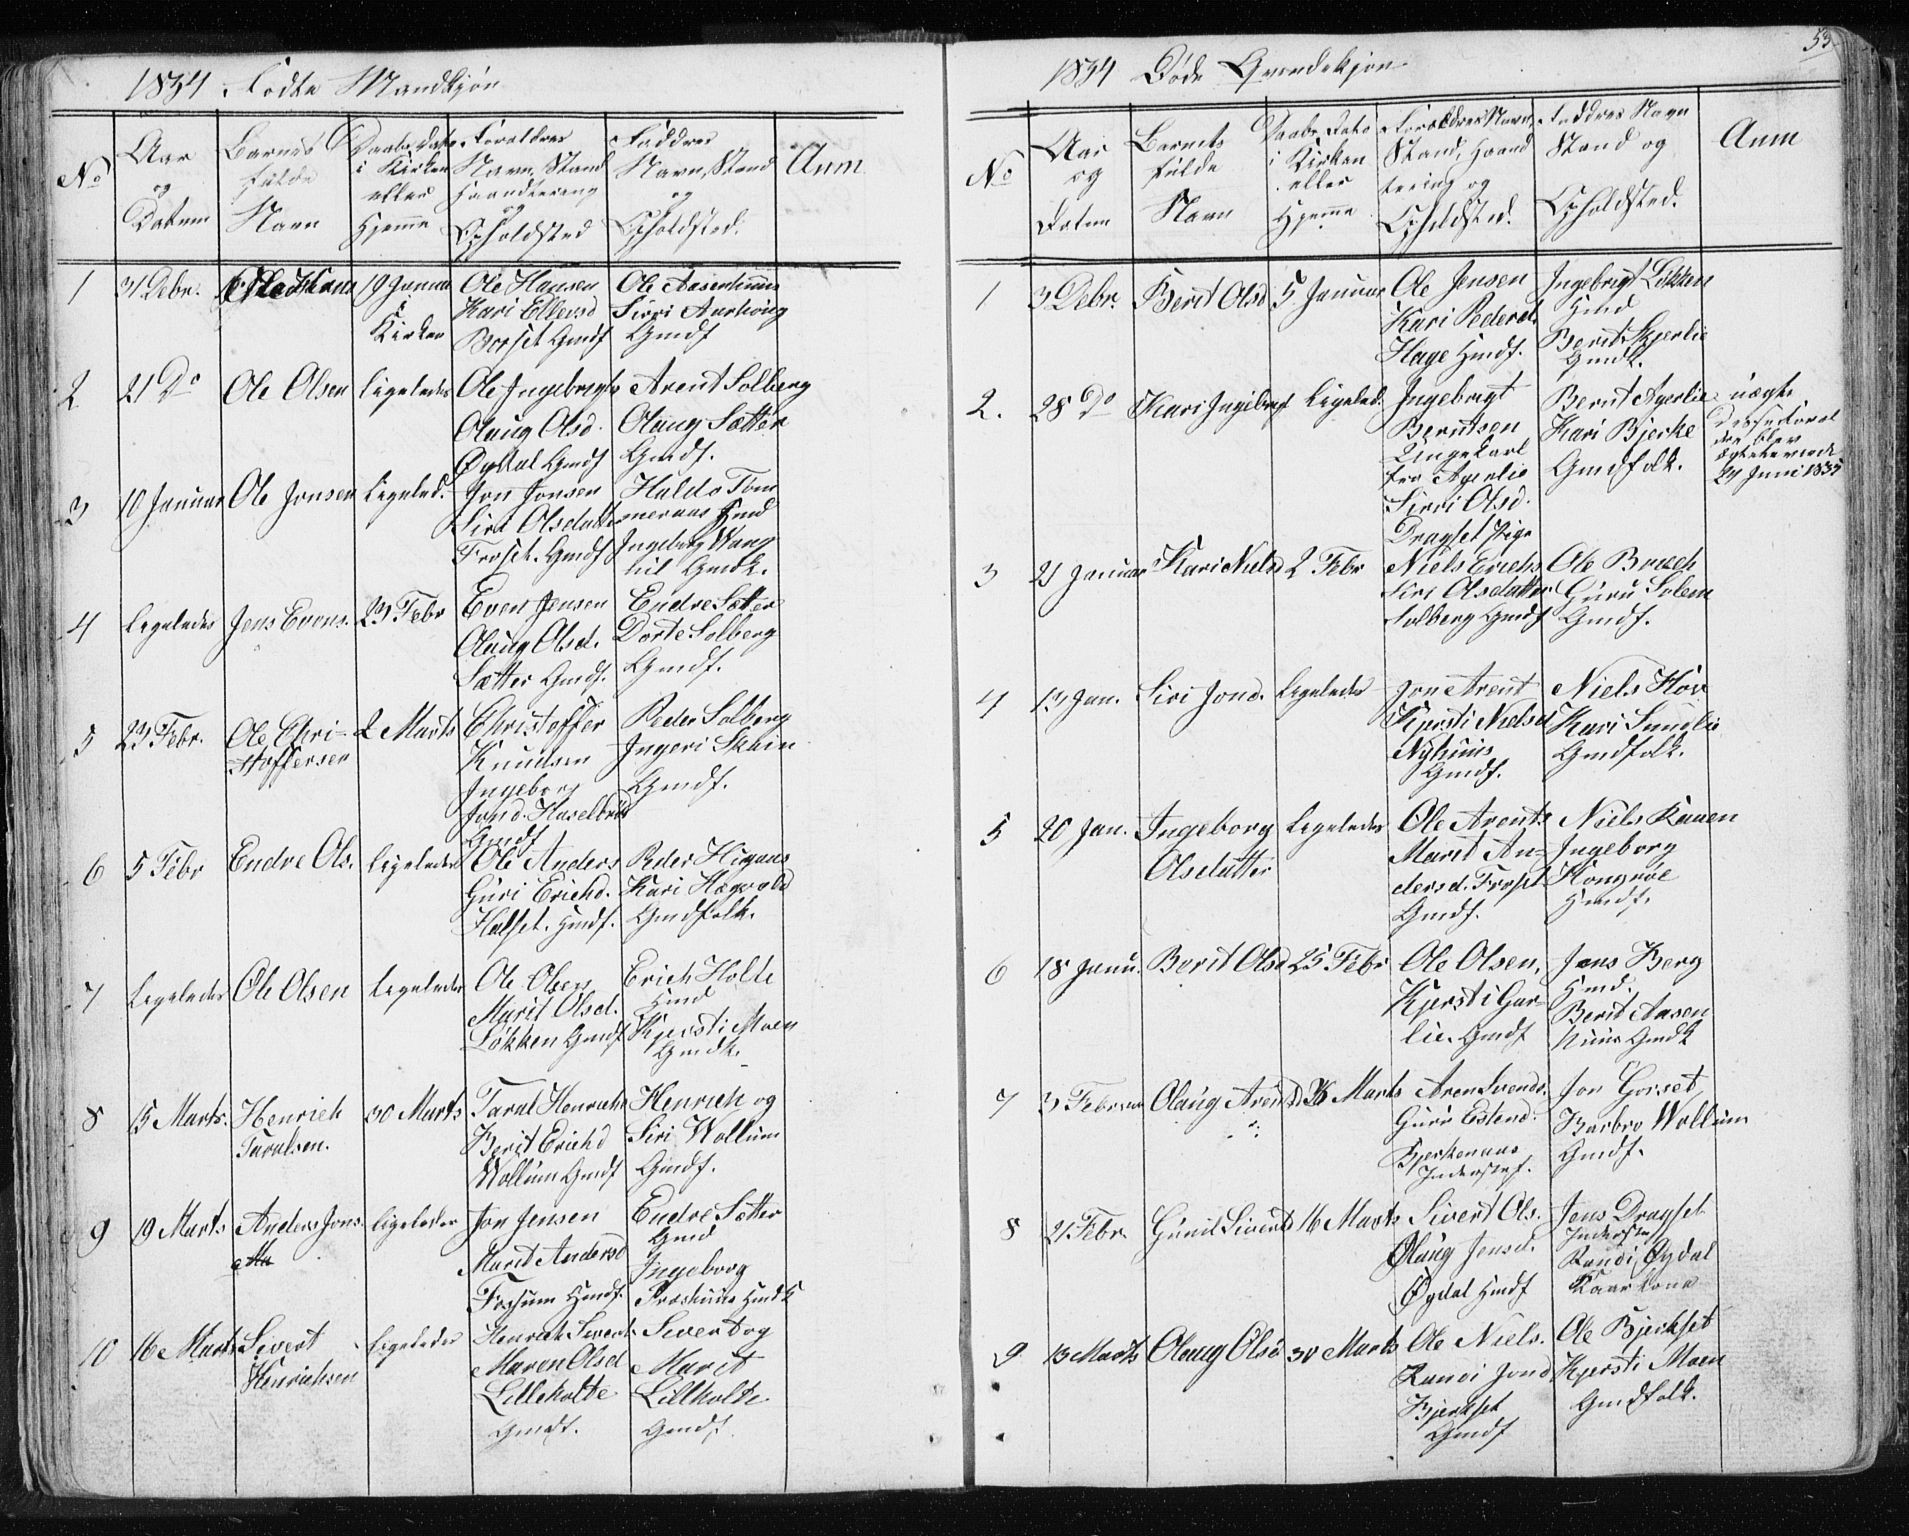 53
1834 Fødte Mandkjøn
No
Aar og Datum
Barnets fulde Navn
Daabs Dato i Kirken eller Hjemme
Forældres Navn, Stand Haandtering og Opholdsted
Faddres Navn, Stand og Opholdsted.
Anm
1
31 Debr.
19 Januar i Kirken
Ole Hansen
Kari Ellevsd
Borset Gmdf
Ole Aasenhuus
Sirri Aarhoug
Gmdf
2
21 Do
Ole Olsen
Ligeledes
Ole Ingebrigts
Olaug Olsd.
Øydal Gmdf
Arent Solberg
Olaug Sætter
Gmdf.
3
10 Januar
Ole Jonsen
Ligeled.
Jon Jonsen
Siri Olsdatter
Froset. Gmdf
Haldo Tømmeraas Gmd
Ingeborg
Gmdk.
4
Ligeledes
Jens Evens.
23 Febr
Even Jensen
Olaug Olsd.
Sætter Gmdf.
Endre Sætter
Dorte Solberg
Gmdf.
5
23 Febr.
Ole Christoffersen
2 Marts
Christoffer
Knudsen
Ingeborg
Jonsd.
Gmdf
Peder Solberg
Ingeri
Gmdf.
6
5 Febr
Endre Ols.
Ligeledes
Ole Anders
Guri Erichd.
Halset. Hmdf.
Peder
Kari Hægvold
Gmdfolk.
7
Ligeledes
Ole Olsen
Ligeledes
Ole Olsen
Marit Olsd.
Løkken Gmdf
Erich Holte
Hmd
Kjersti Moen
Gmdk.
8
15 Marts.
Henrich
Taralsen.
30 Marts
Taral Henrichs
Berit Erichd
Wollum Gmdf
Henrich og
Siri Wollum
Gmdf.
9
19 Marts
Anders Jons
Ligeledes
Jon Jensen
Marit Andersd
Fossum Hmdf.
Endre Sætter
Gmd
Ingeborg
Hmdk
10
16 Marts
Sivert
Henrichsen
Ligeledes
Henrich Sivert
Maren Olsd
Lilleholte
Gmdf.
Sivert og
Marit
Lillholte
Gmdf.
1834 Døde Qvindekjøn
No
Aar og Datum
Barnets fulde Navn
Daabs Dato i Kirken eller Hjemme
Forældres Navn, Stand, Haandtering og Opholdsted.
Faddres Navn Stand og Opholdsted.
Anm
1
3 Debr.
Berit Olsd
5 Januar
Ole Jensen
Kari Pedersd.
Hage Hmdf.
Ingebrigt Løkken
Hmd
Berit
Gmdk.
2.
28 Do
Kari Ingebrigt
Ligeled.
Ingebrigt
Berntsen
Ungekarl
fra Agerlie
Sirri Olsd.
Dragset Pige
Bernt Agerlie
Kari Bjerke
Gmdfolk.
uægte
Disse forældre blev
ægteviede
24 Juni 1835
3
21 Januar
Kari Nielsd
2 Febr
Niels Erichs
Siri Olsdatter
Solberg Gmdf
Ole
Guru Solem
Gmdf.
4
13 Jan.
Siri Jonsd.
Ligeledes
Jon Arent
Kjersti Nielsd
Nyhuus
Gmdf.
Niels Hov
Kari Sundlie
Gmdfolk.
5
20 Jan.
Ingeborg
Olsdatter
Ligeledes
Ole Arents
Marit Andersd. Froset
Gmdf.
Niels
Ingeborg
Hmdf.
6
18 Janu.
Berit Olsd
25 Febr
Ole Olsen,
Kjersti Garlie. Gmdf
Jens Berg
Hmd.
Berit Aasenhuus Gmdk
7
3 Februar
Olaug Arentsd
Marts
Aren Svends.
Guru Estend.
Bjerkenaas
Jon Gorset,
Barbro Wollum
Gmdf.
8
21 Febr.
Gunil Sivertsd
16 Marts
Sivert Ols.
Olaug Jensd.
Øydal Hmdf
Jens Dragset
Randi Øydal
Kaarkone
9
13 Marts
Olaug Olsd
30 Marts
Ole Niels.
Randi Jonsd
Bjerkset
Gmdf
Ole Bjerkset
Kjersti Moen
Gmdfolk.